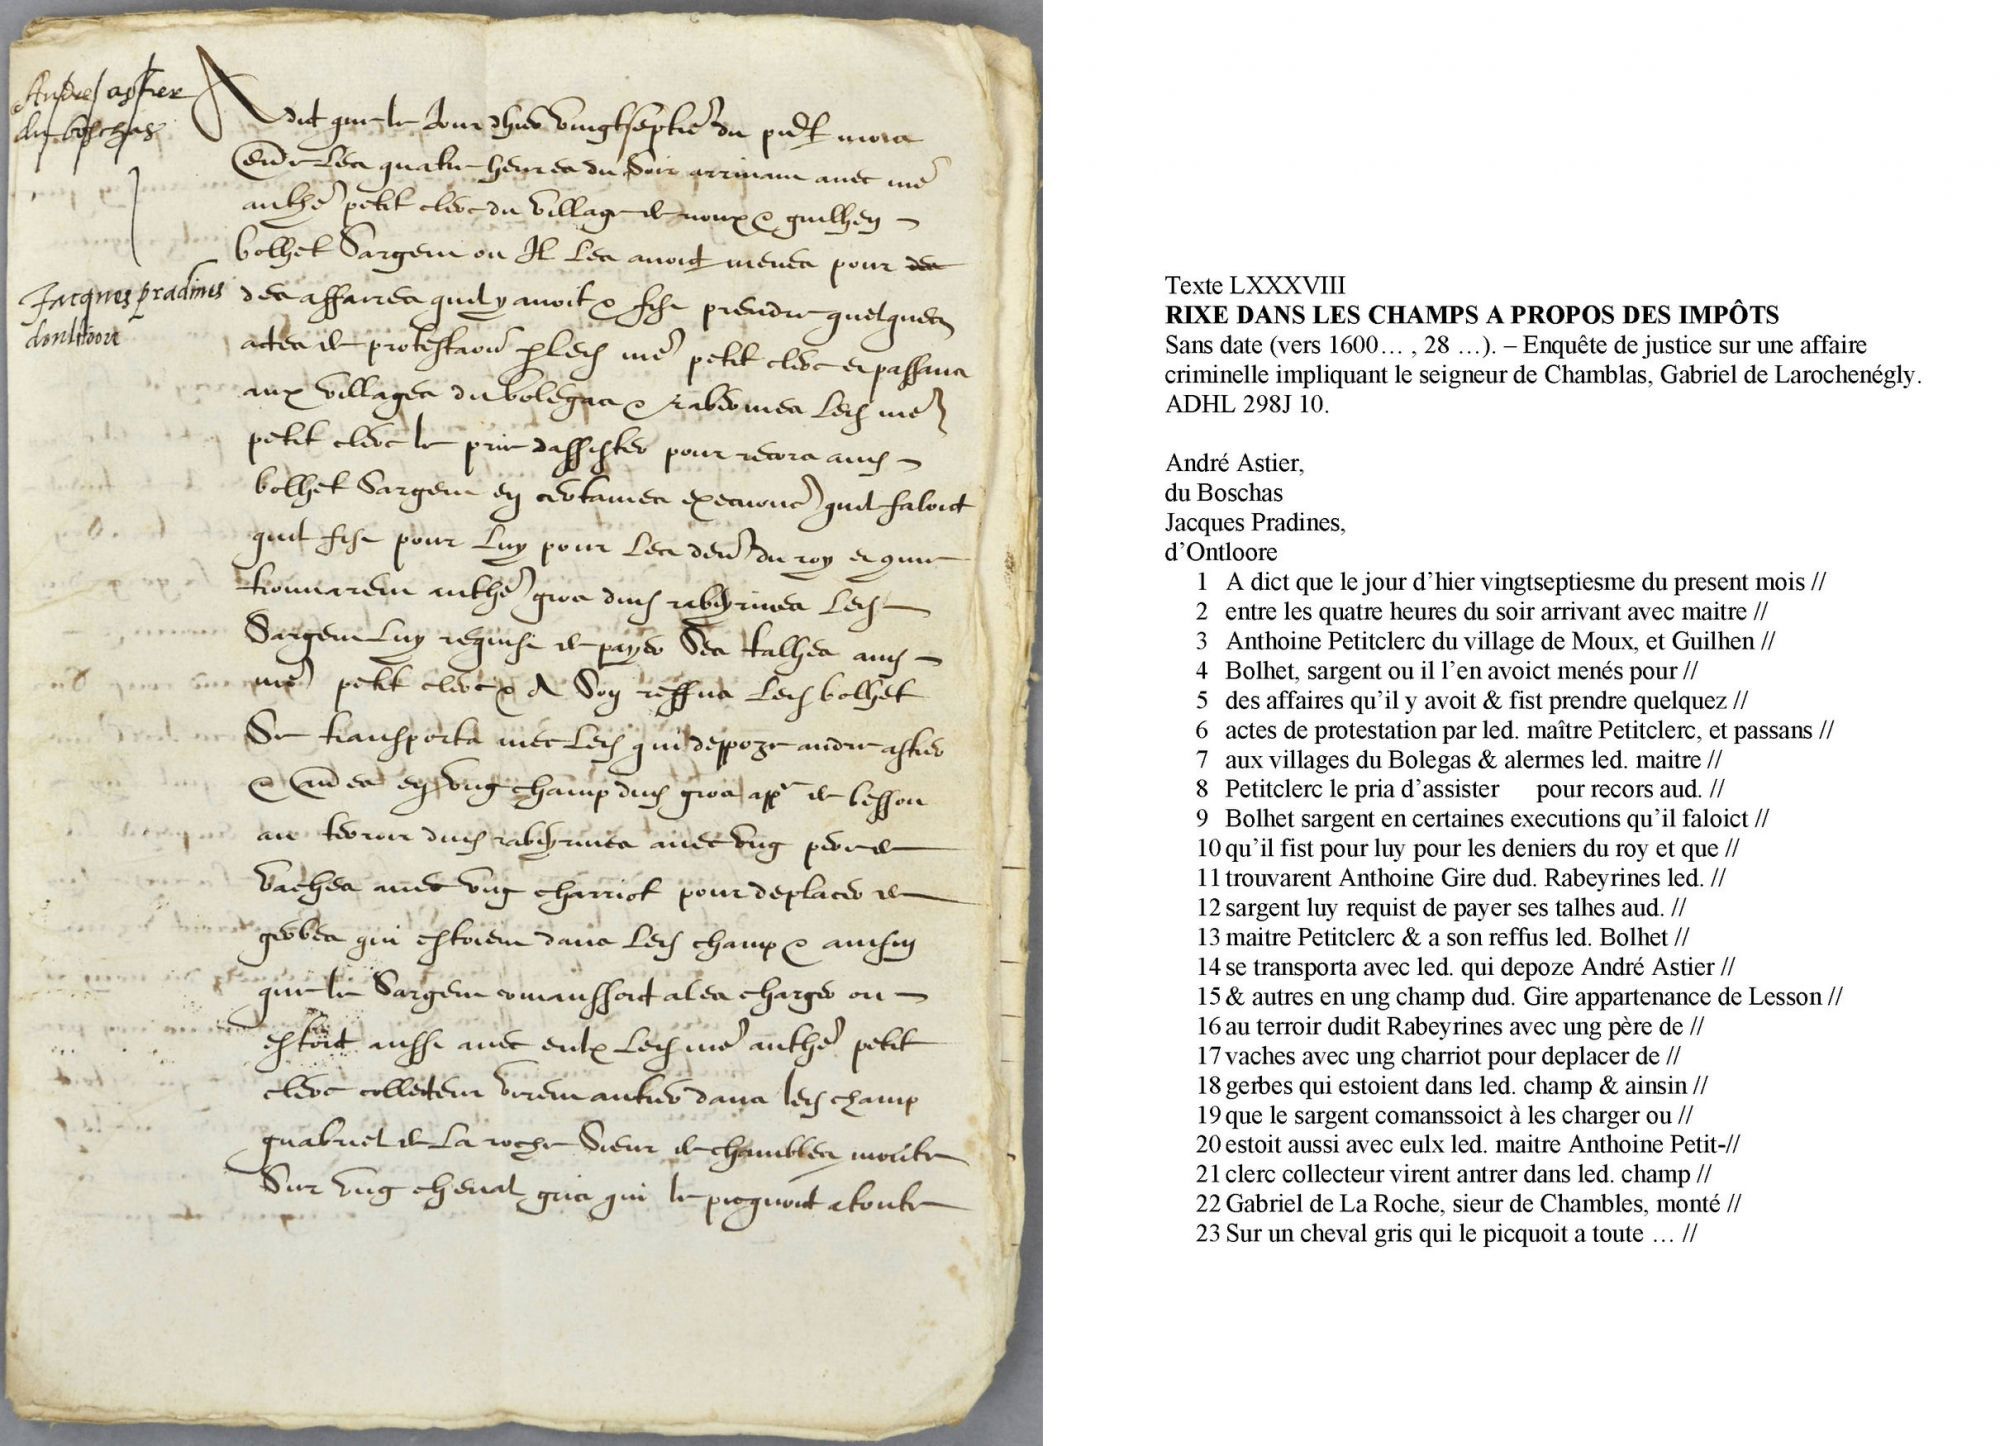 Andre astier
du boschas
Jacques pradines
dontloore
A dict que le Jour dhier vingtseptie du pnt mois
Entre Les quatre heures du Soir arrivant avec me
anthe petit clerc du village de moux & guilhen
bolhet Sargent ou Il Les avoict menes pour des
des affaires quil y avoit & fist prendre quelques
actes de protestaon p Led me petit clerc et passans
aux villages du bolegas & Led me
petit clerc le pria dassister pour recors aud
bolhet Sargent en certaines execuons quil faloict
quil fist pour Luy pour Les den du roy et que
trouvarent anthe gire dud rabeyrines Led
Sargent Luy requist de payer Ses talhes aud
me petit clerc & A Son reffus Led bolhet
Se transporta avec Led qui deppoze andre astier
& aues en ung champ dud gire ap de lesson
au terroir dud rabeyrines avec ung pere de
vaches avec ung charriot pour deplacer de
gerbes qui estoient dans Led champ & ainsin
que le Sargent comanssoict a les charger ou
estoit aussi avec eulx Led me anthe petit
clerc collecteur virent antrer dans led champ
guabriel de La roche Sieur de chambles monte
Sur ung cheval gris qui le picquoit a toute
Texte LXXXVIII
RIXE DANS LES CHAMPS A PROPOS DES IMPÔTS
Sans date (vers 1600… , 28 …). – Enquête de justice sur une affaire
criminelle impliquant le seigneur de Chamblas, Gabriel de Larochenégly.
ADHL 298J 10.
André Astier,
du Boschas
Jacques Pradines,
d’Ontloore
1 A dict que le jour d’hier vingtseptiesme du present mois //
2 entre les quatre heures du soir arrivant avec maitre //
3 Anthoine Petitclerc du village de Moux, et Guilhen //
4 Bolhet, sargent ou il l’en avoict menés pour //
5 des affaires qu’il y avoit & fist prendre quelquez //
6 actes de protestation par led. maître Petitclerc, et passans //
7 aux villages du Bolegas & alermes led. maitre //
8 Petitclerc le pria d’assister pour recors aud. //
9 Bolhet sargent en certaines executions qu’il faloict //
10 qu’il fist pour luy pour les deniers du roy et que //
11 trouvarent Anthoine Gire dud. Rabeyrines led. //
12 sargent luy requist de payer ses talhes aud. //
13 maitre Petitclerc & a son reffus led. Bolhet //
14 se transporta avec led. qui depoze André Astier //
15 & autres en ung champ dud. Gire appartenance de Lesson //
16 au terroir dudit Rabeyrines avec ung père de //
17 vaches avec ung charriot pour deplacer de //
18 gerbes qui estoient dans led. champ & ainsin //
19 que le sargent comanssoict à les charger ou //
20 estoit aussi avec eulx led. maitre Anthoine Petit-//
21 clerc collecteur virent antrer dans led. champ //
22 Gabriel de La Roche, sieur de Chambles, monté //
23 Sur un cheval gris qui le picquoit a toute … //